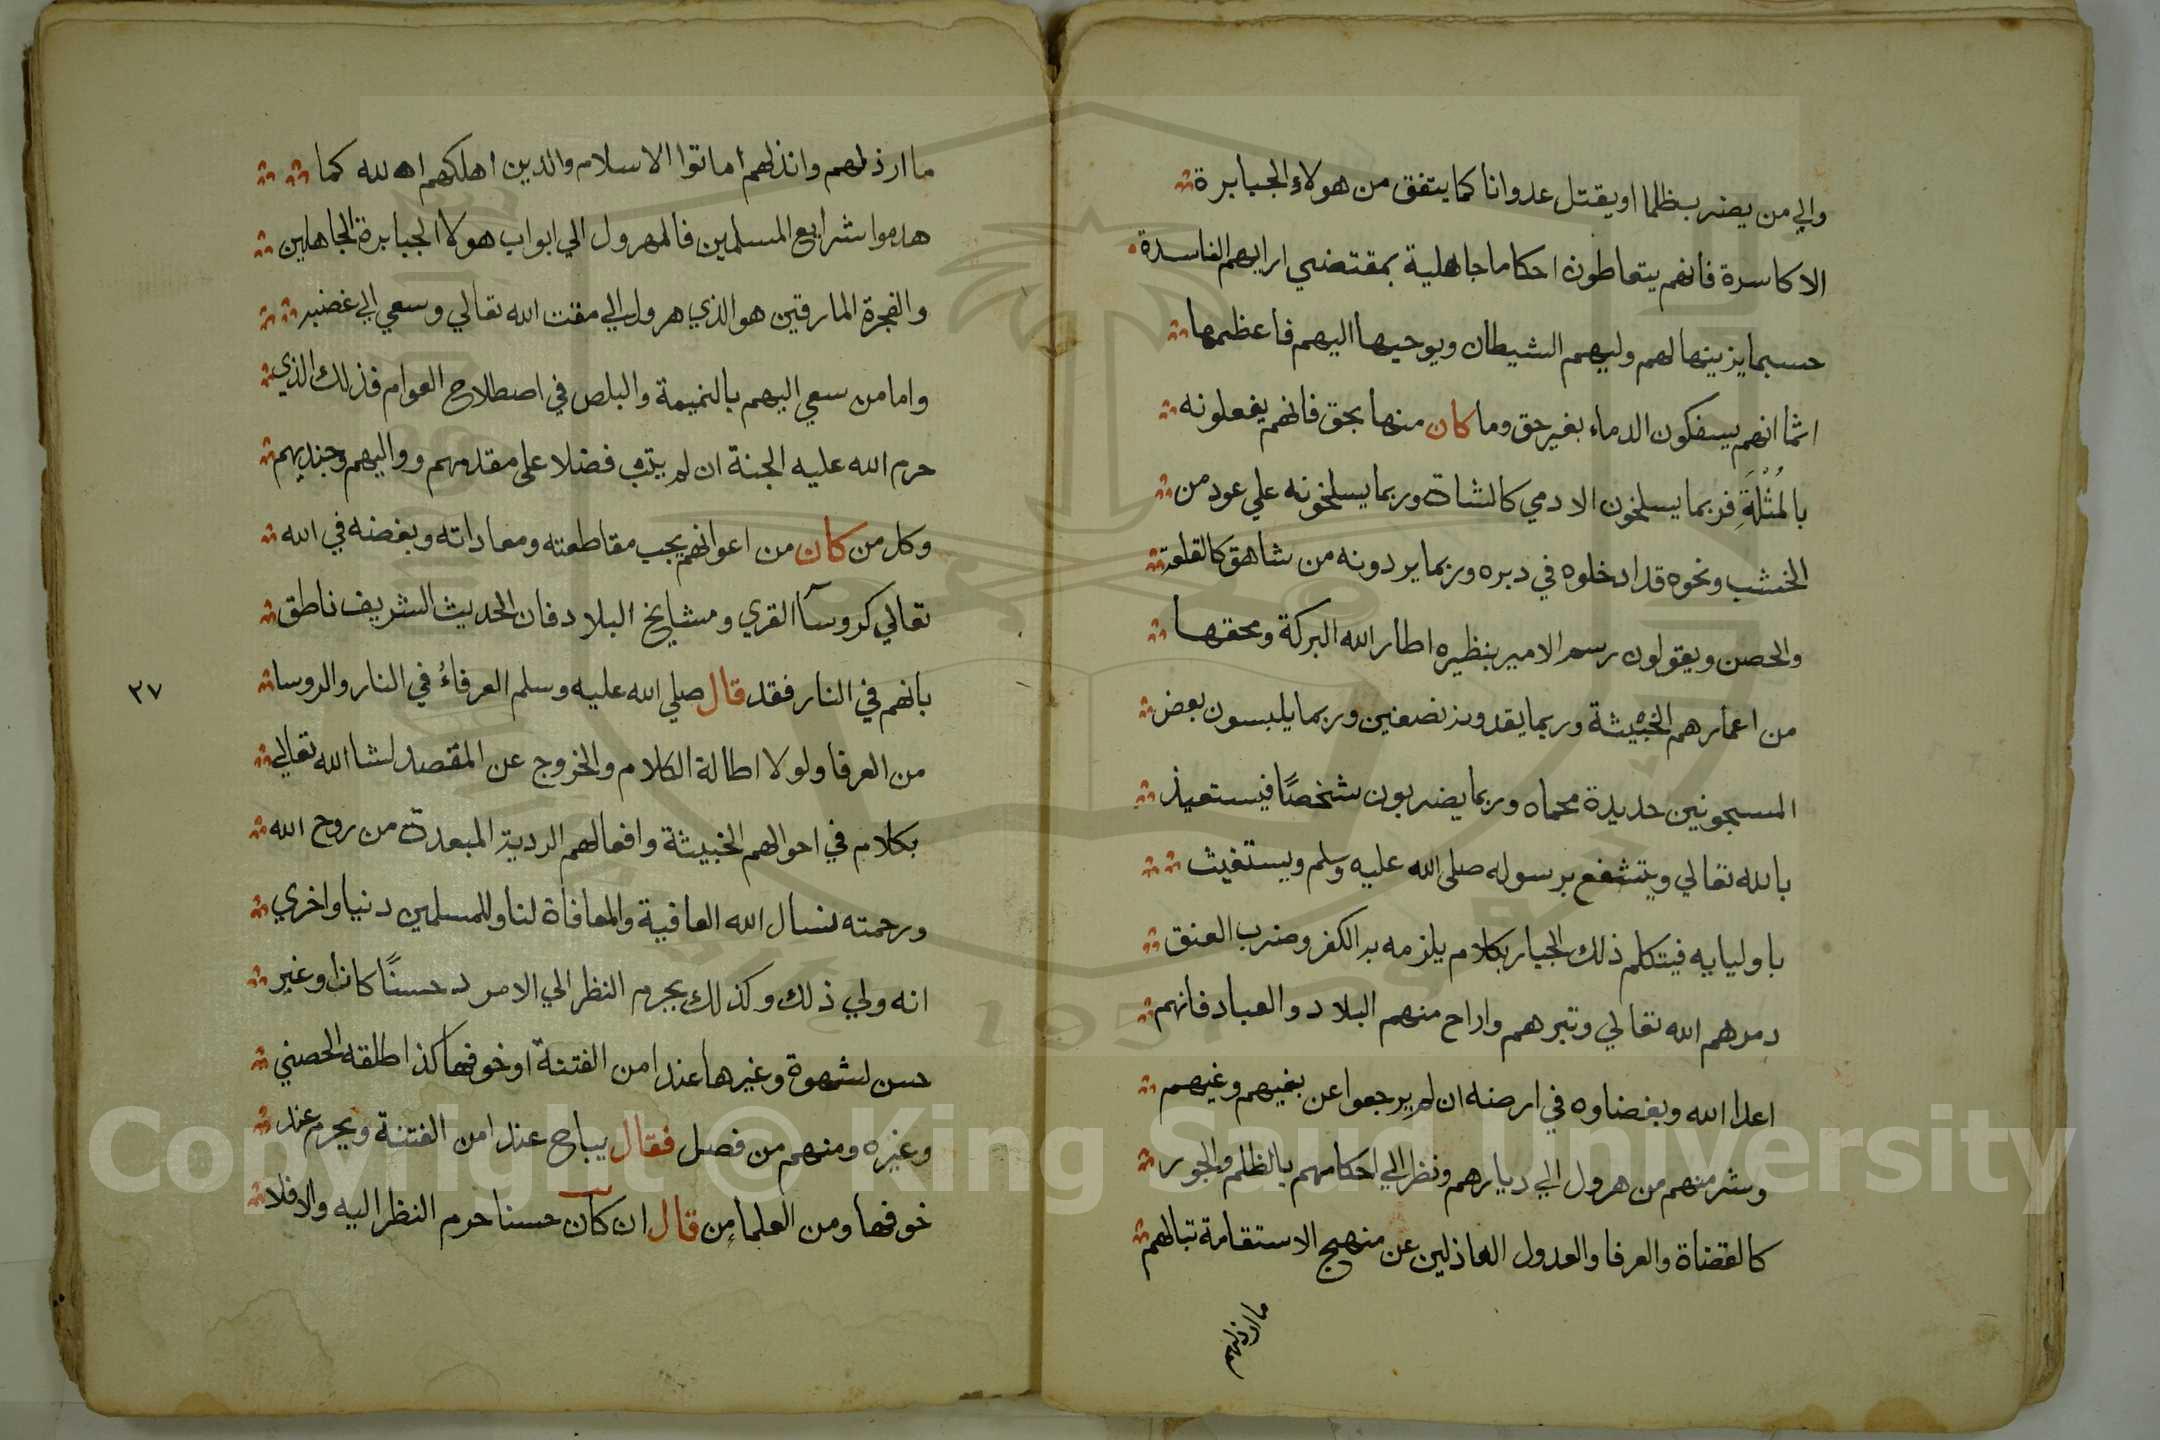 والي من يضرب ظلما او يقتل عدوانا كما يتفق من هولاء الجبابرة
الاكاسرة فانهم يتعاطون احكاما جاهلية بمقتضي ارايهم الفاسدة
حسبما يزينها لهم وليهم الشيطان ويوحيها اليهم فاعظمها
اثما انهم يسفكون الدماء بغير حق وما كان منها بحق فانهم يفعلونه
بالمُثْلَةِ فربما يسلخون الادمي كالشاة وربما يسلخونه علي عود من
الخشب ونحوه قد ادخلوه في دبره وربما يردونه من شاهق كالقلعة
والحصن ويقولون رسم الامير بنظيره اطار الله البركة ومحقها
من اعمارهم الخبيثة وربما يقدونه نصفين وربما يلبسون بعض
المسجونين حديدة محماه وربما يضربون شخصًا فيستعيذ
بالله تعالي ويتشفع برسوله صلى الله عليه وسلم ويستغيث
باوليايه فيتكلم ذلك الجبار بكلام يلزمه به الكفر وضرب العنق
دمرهم الله تعالي وتبرهم واراح منهم البلاد والعباد فانهم
اعدا الله وبغضاوه في ارضه ان لم يرجعوا عن بغيهم وغيهم
وشر منهم من هرول الي ديارهم ونظر الي احكامهم بالظلم والجور
كالقضاة والعرفا والعدول العاذلين عن منهج الاستقامة تبالهم
ما ارذلهم
ما ارذلهم وانذلهم اماتوا الاسلام والدين اهلكهم الله كما
هدموا شرايع المسلمين فالمهرول الي ابواب هولا الجبابرة الجاهلين
والفجرة المارقين هو الذي هرول الي مقت الله تعالي وسعي الي غضبه
واما من سعي اليهم بالنميمة والبلص في اصطلاح العوام فذلك الذي
حرم الله عليه الجنة ان لم يتب فضلا على مقدمهم وواليهم وجنديهم
وكل من كان من اعوانهم يجب مقاطعته ومعاداته وبغضه في الله
تعالي كروسآ القري ومشايخ البلاد فان الحديث الشريف ناطق
بانهم في النار فقد قال صلي الله عليه وسلم العرفاءُ في النار والروسا
من العرفا ولولا اطالة الكلام والخروج عن المقصد لشا الله تعالي
بكلام في احوالهم الخبيثة وافعالهم الردية المبعدة من روح الله
ورحمته نسال الله العافية والمعافاة لنا وللمسلمين دنيا واخري
انه ولي ذلك وكذلك يحرم النظر الي الامرد حسنًا كان او غير
حسن لشهوة وغيرها عند امن الفتنة او خوفها كذا اطلقه الحصني
وغيره ومنهم من فصل فقال يباح عند امن الفتنة ويحرم عند
خوفها ومن العلما من قال ان كان حسنا حرم النظر اليه والا فلا
٣٧
Copyright © King Saud University
1957